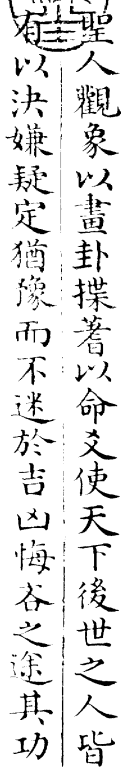 聖人觀象以畫卦揲蓍以命爻使天下後世之人皆
有以決嫌疑定猶豫而不迷於吉凶悔吝之途其功